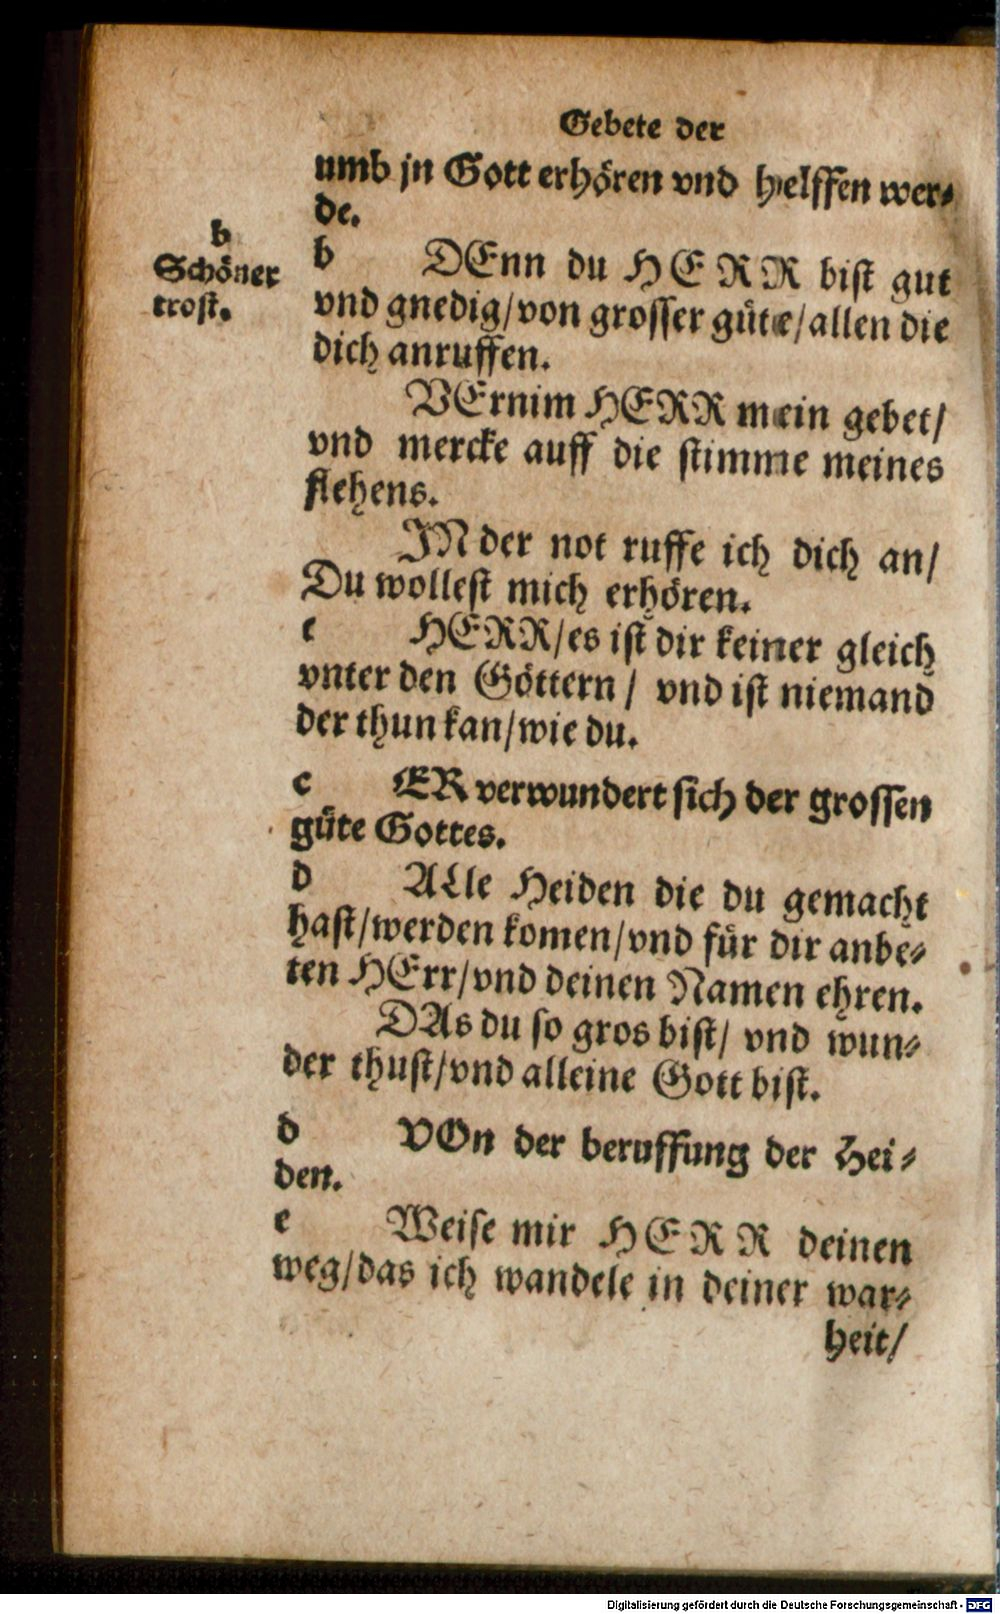 Gebete der
umb jn Gott erhören vnd helffen wer⸗
de.
b
Schöner
trost.
b DEnn du HERR bist gut
vnd gnedig/von grosser güte/allen die
dich anruffen.
VErnim HERR mein gebet/
vnd mercke auff die stimme meines
flehens.
IN der not ruffe ich dich an/
Du wollest mich erhören.
c HERR/es ist dir keiner gleich
vnter den Göttern/ vnd ist niemand
der thun kan/wie du.
c ER verwundert sich der grossen
güte Gottes.
d ALle Heiden die du gemacht
hast/werden komen/vnd für dir anbe⸗
ten HErr/vnd deinen Namen ehren.
DAs du so gros bist/ vnd wun⸗
der thust/vnd alleine Gott bist.
d VOn der beruffung der Hei⸗
den.
e Weise mir HERR deinen
weg/das ich wandele in deiner war⸗
heit/
Digitalisierung gefördert durch die Deutsche Forschungsgemeinschaft - DFG